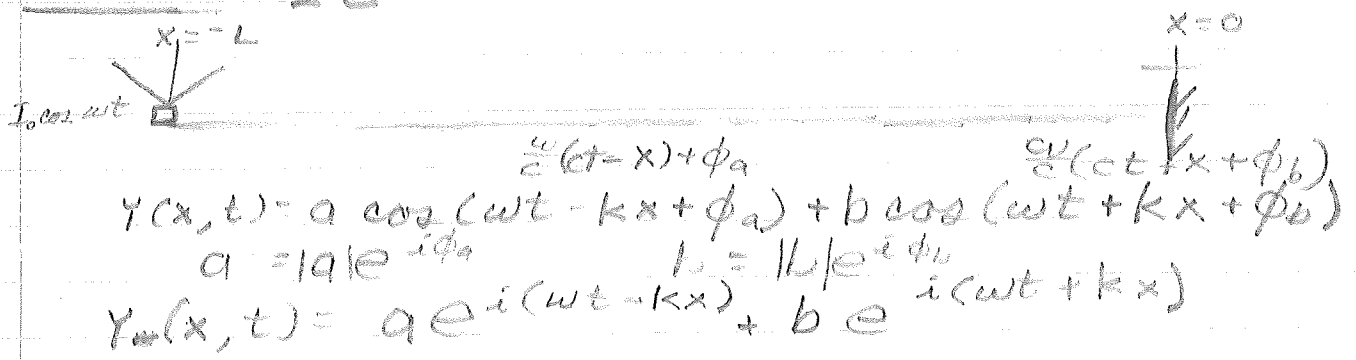 x = -L
x = 0
I₀ cos ωt
ω/c (ct - x) + φa
ω/c (ct + x + φb)
Y(x, t) = a cos(ωt - kx + φa) + b cos(ωt + kx + φb)
a = |a|e^{iφa} b = |b|e^{iφb}
Y(x, t) = a e^{i(ωt - kx)} + b e^{i(ωt + kx)}